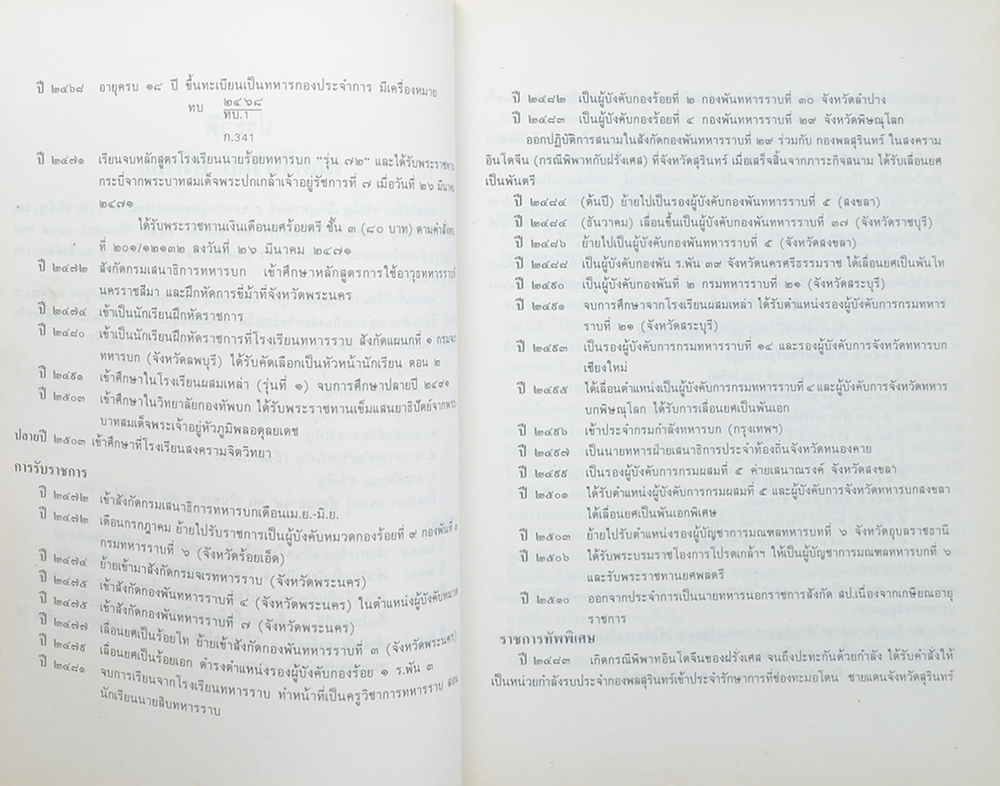 ปี ๒๔๖๘ อายุครบ ๑๘ ปี ขึ้นทะเบียนเป็นทหารกองประจำการ มีเครื่องหมาย
ทบ ๒๔๖๘
ทบ.1
ก.341
ปี ๒๔๗๑ เรียนจบหลักสูตรโรงเรียนนายร้อยทหารบก "รุ่น ๗๒" และได้รับพระราชทาน
กระบี่จากพระบาทสมเด็จพระปกเกล้าเจ้าอยู่รัชการที่ ๗ เมื่อวันที่ ๒๖ มีนาคม
๒๔๗๑
ได้รับพระราชทานเงินเดือนยศร้อยตรี ชั้น ๓ (๘๐ บาท) ตามคำสั่ง
ที่ ๒๐๑/๑๒๑๓๒ ลงวันที่ ๒๖ มีนาคม ๒๔๗๑
ปี ๒๔๗๒ สังกัดกรมเสนาธิการทหารบก เข้าศึกษาหลักสูตรการใช้อาวุธทหารราบที่
นครราชสีมา และฝึกหัดการขี่ม้าที่จังหวัดพระนคร
ปี ๒๔๗๔ เข้าเป็นนักเรียนฝึกหัดราชการ
ปี ๒๔๘๐ เข้าเป็นนักเรียนฝึกหัดราชการที่โรงเรียนทหารราบ สังกัดแผนกที่ ๑
ทหารบก (จังหวัดลพบุรี) ได้รับคัดเลือกเป็นหัวหน้านักเรียน ตอน ๒
ปี ๒๔๙๑ เข้าศึกษาในโรงเรียนผสมเหล่า (รุ่นที่ ๑) จบการศึกษาปลายปี ๒๔๙๑
ปี ๒๕๐๓ เข้าศึกษาในวิทยาลัยกองทัพบก ได้รับพระราชทานเข็มแสนยาธิปัตย์จากพระ
บาทสมเด็จพระเจ้าอยู่หัวภูมิพลอดุลยเดช
ปลายปี ๒๕๐๓ เข้าศึกษาที่โรงเรียนสงครามจิตวิทยา
การรับราชการ
ปี ๒๔๗๒ เข้าสังกัดกรมเสนาธิการทหารบกเดือนเม.ย.-มิ.ย.
ปี ๒๔๗๒ เดือนกรกฎาคม ย้ายไปรับราชการเป็นผู้บังคับหมวดกองร้อยที่ ๙ กองพันที่
กรมทหารราบที่ ๖ (จังหวัดร้อยเอ็ด)
ปี ๒๔๗๔ ย้ายเข้ามาสังกัดกรมจเรทหารราบ (จังหวัดพระนคร)
ปี ๒๔๗๕ เข้าสังกัดกองพันทหารราบที่ ๔ (จังหวัดพระนคร) ในตำแหน่งผู้บังคับหมวด
ปี ๒๔๗๕ เข้าสังกัดกองพันทหารราบที่ ๗ (จังหวัดพระนคร)
ปี ๒๔๗๗ เลื่อนยศเป็นร้อยโท ย้ายเข้าสังกัดกองพันทหารราบที่ ๓ (จังหวัดพระนคร)
ปี ๒๔๗๙ เลื่อนยศเป็นร้อยเอก ดำรงตำแหน่งรองผู้บังคับกองร้อย ๑ ร.พัน ๓
ปี ๒๔๘๑ จบการเรียนจากโรงเรียนทหารราบ ทำหน้าที่เป็นครูวิชาการทหารราบ
นักเรียนนายสิบทหารราบ
ปี ๒๔๘๒ เป็นผู้บังคับกองร้อยที่ ๒ กองพันทหารราบที่ ๓๐ จังหวัดลำปาง
ปี ๒๔๘๓ เป็นผู้บังคับกองร้อยที่ ๔ กองพันทหารราบที่ ๒๙ จังหวัดพิษณุโลก
ออกปฏิบัติการสนามในสังกัดกองพันทหารราบที่ ๒๙ ร่วมกับ กองพลสุรินทร์ ในสงคราม
อินโดจีน (กรณีพิพาทกับฝรั่งเศส) ที่จังหวัดสุรินทร์ เมื่อเสร็จสิ้นจากภาระกิจสนาม ได้รับเลื่อนยศ
เป็นพันตรี
ปี ๒๔๘๔ (ต้นปี) ย้ายไปเป็นรองผู้บังคับกองพันทหารราบที่ ๕ (สงขลา)
ปี ๒๔๘๔ (ธันวาคม) เลื่อนขึ้นเป็นผู้บังคับกองพันทหารราบที่ ๓๗ (จังหวัดราชบุรี)
ปี ๒๔๘๖ ย้ายไปเป็นผู้บังคับกองพันทหารราบที่ ๕ (จังหวัดสงขลา)
ปี ๒๔๘๘ เป็นผู้บังคับกองพัน ร.พัน ๓๙ จังหวัดนครศรีธรรมราช ได้เลื่อนยศเป็นพันโท
ปี ๒๔๙๐ เป็นผู้บังคับกองพันที่ ๒ กรมทหารราบที่ ๒๑ (จังหวัดสระบุรี)
ปี ๒๔๙๑ จบการศึกษาจากโรงเรียนผสมเหล่า ได้รับตำแหน่งรองผู้บังคับการกรมทหาร
ราบที่ ๒๑ (จังหวัดสระบุรี)
ปี ๒๔๙๓ เป็นรองผู้บังคับการกรมทหารราบที่ ๑๔ และรองผู้บังคับการจังหวัดทหารบก
เชียงใหม่
ปี ๒๔๙๕ ได้เลื่อนตำแหน่งเป็นผู้บังคับการกรมทหารราบที่ ๔ และผู้บังคับการจังหวัดทหาร
บกพิษณุโลก ได้รับการเลื่อนยศเป็นพันเอก
ปี ๒๔๙๖ เข้าประจำกรมกำลังทหารบก (กรุงเทพฯ)
ปี ๒๔๙๗ เป็นนายทหารฝ่ายเสนาธิการประจำท้องถิ่นจังหวัดหนองคาย
ปี ๒๔๙๙ เป็นรองผู้บังคับการกรมผสมที่ ๕ ค่ายเสนาณรงค์ จังหวัดสงขลา
ปี ๒๕๐๑ ได้รับตำแหน่งผู้บังคับการกรมผสมที่ ๕ และผู้บังคับการจังหวัดทหารบกสงขลา
ได้เลื่อนยศเป็นพันเอกพิเศษ
ปี ๒๕๐๓ ย้ายไปรับตำแหน่งรองผู้บัญชาการมณฑลทหารบกที่ ๖ จังหวัดอุบลราชธานี
ปี ๒๕๐๖ ได้รับพระบรมราชโองการโปรดเกล้าฯ ให้เป็นผู้บัญชาการมณฑลทหารบกที่ ๖
และรับพระราชทานยศพลตรี
ปี ๒๕๑๐ ออกจากประจำการเป็นนายทหารนอกราชการสังกัด สป.เนื่องจากเกษียณอายุ
ราชการ
ราชการทัพพิเศษ
ปี ๒๔๘๓ เกิดกรณีพิพาทอินโดจีนของฝรั่งเศส จนถึงปะทะกันด้วยกำลัง ได้รับคำสั่งให้
เป็นหน่วยกำลังรบประจำกองพลสุรินทร์เข้าประจำรักษาการที่ช่องทะมอโดน ชายแดนจังหวัดสุรินทร์